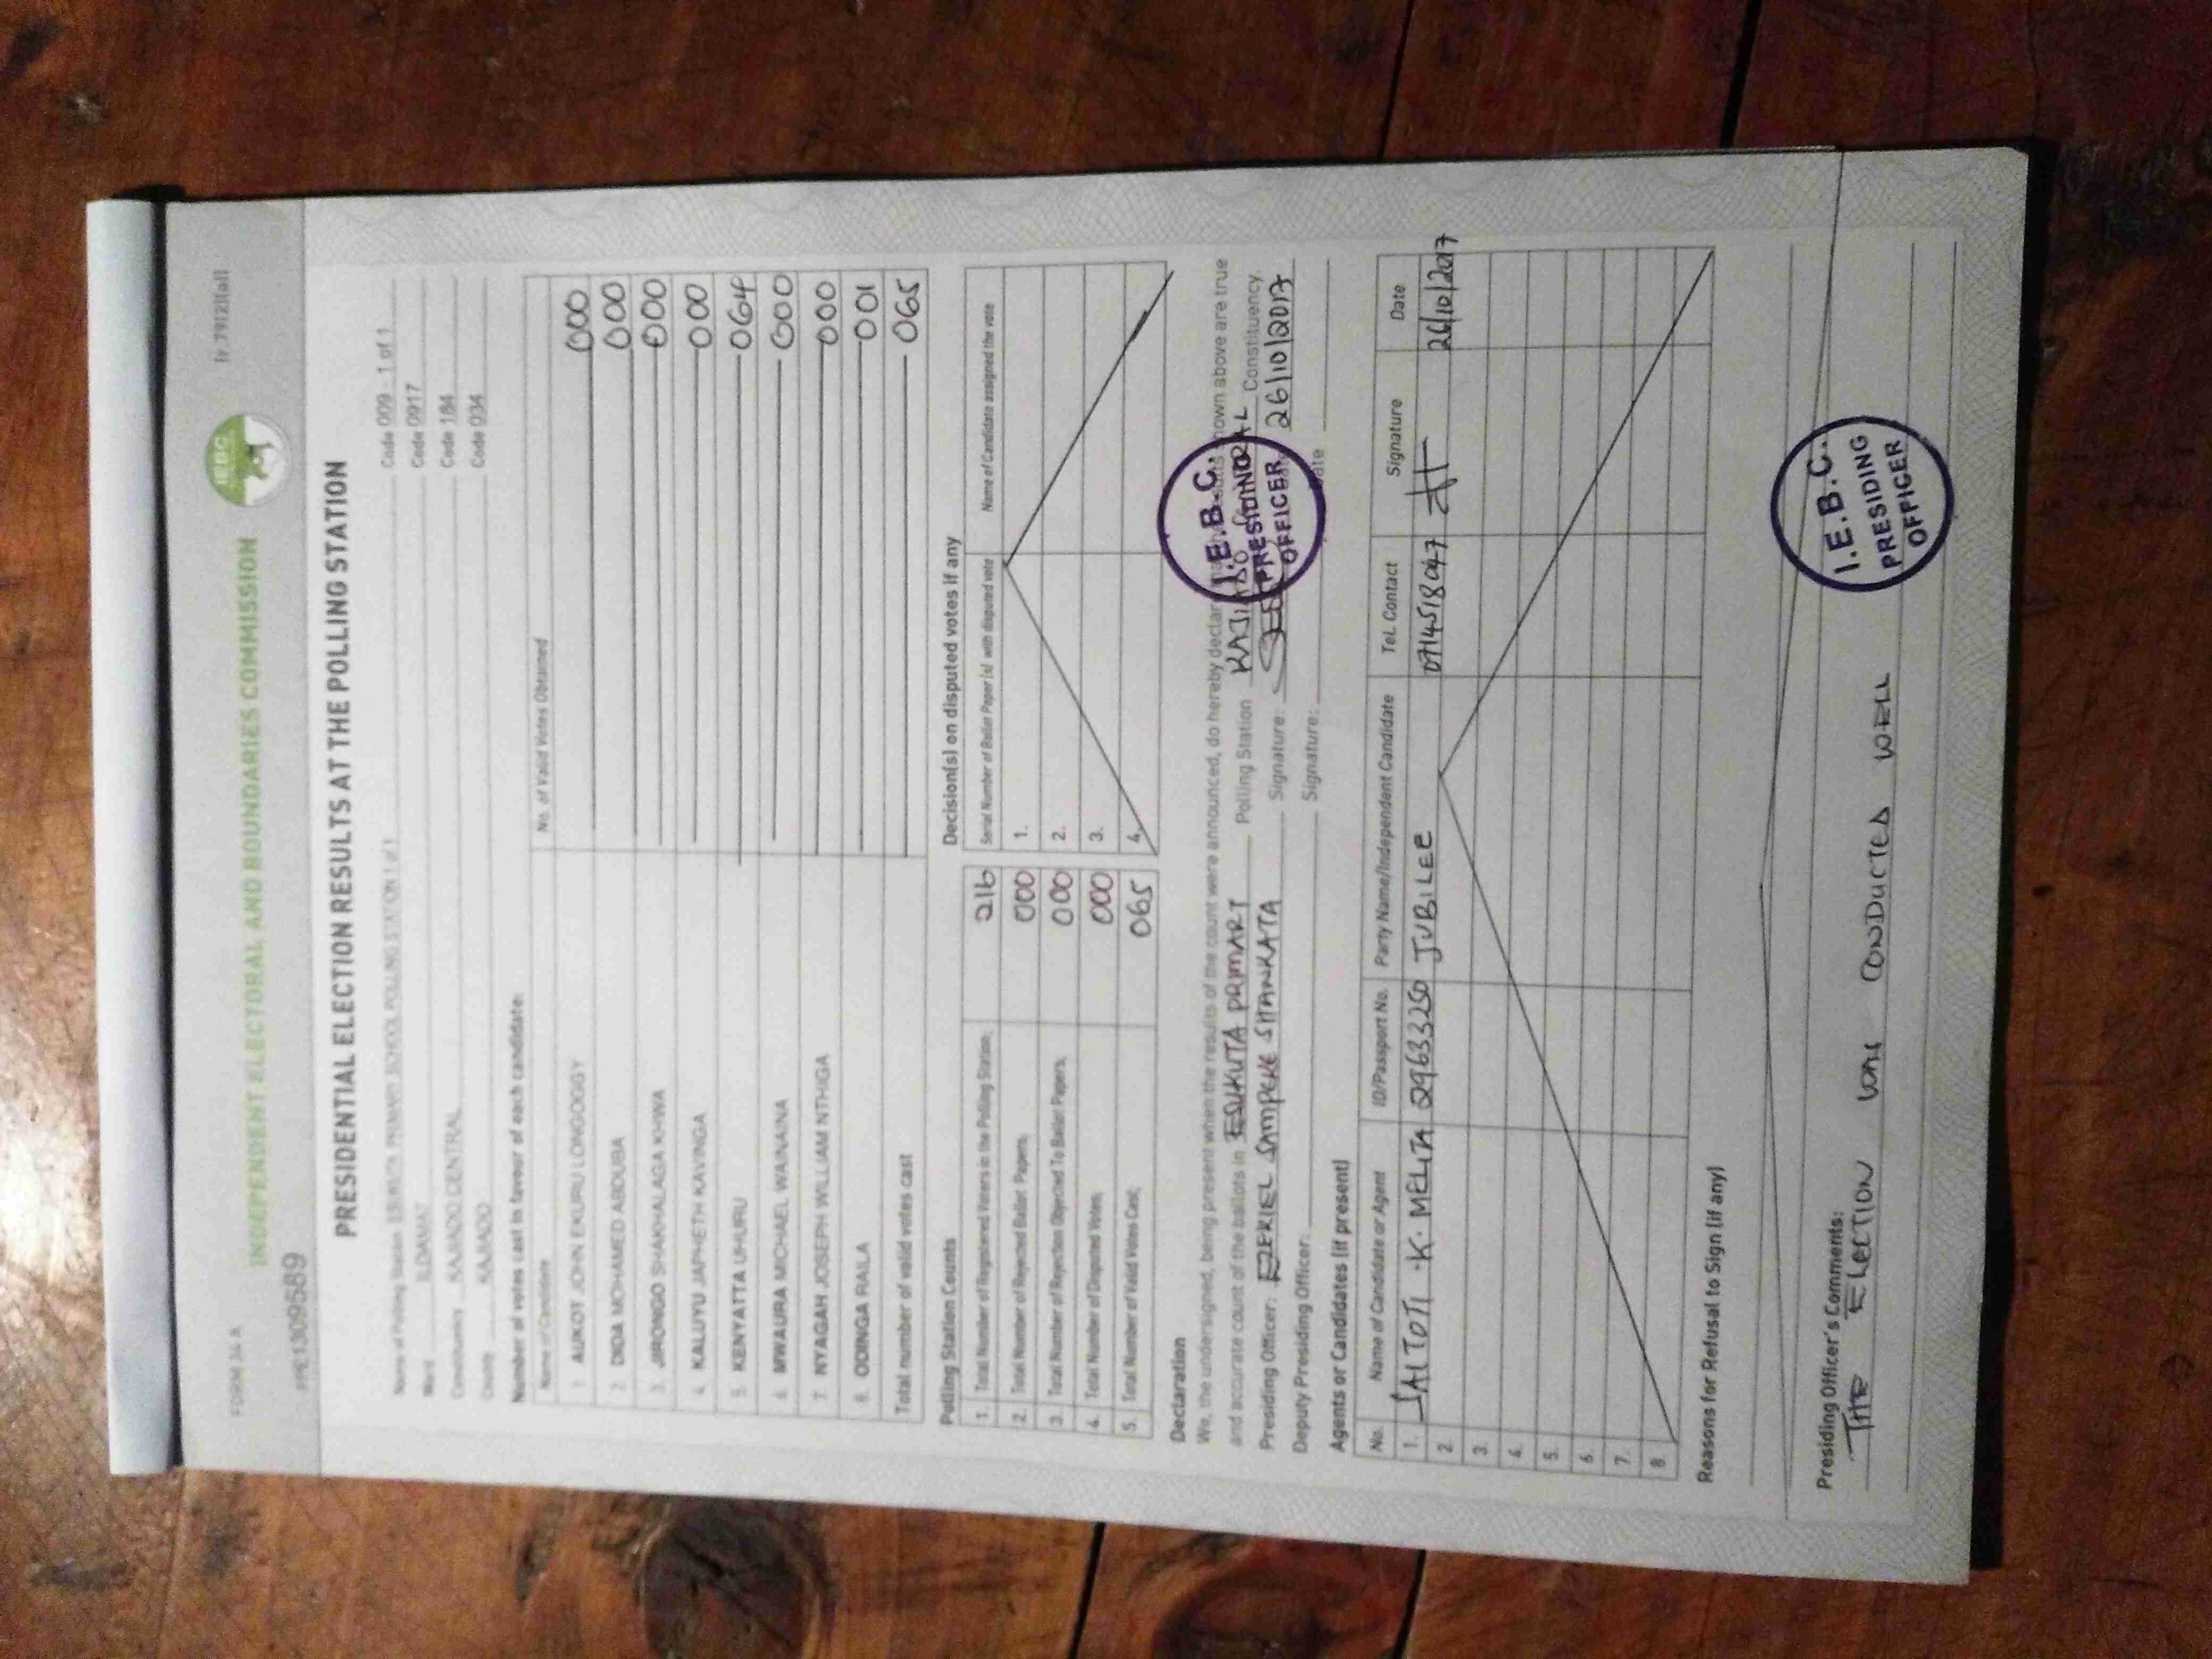 FORM 34 A
INDEPENDENT ELECTORAL AND BOUNDARIES COMMISSION
IEBC
(r.79(2)(a))
PRESIDENTIAL ELECTION RESULTS AT THE POLLING STATION
Name of Polling Station PRIMARY SCHOOL POLLING STATION 1 of 1 Code 009 - 1 of 1
Ward ILDAMAT Code 0917
Constituency KAJIADO CENTRAL Code 184
County KAJIADO Code 034
Number of votes cast in favour of each candidate:
Name of Candidate No. of Valid Votes Obtained
1. AUKOT JOHN EKURU LONGOGGY 000
2. DIDA MOHAMED ABDUBA 000
3. JIRONGO SHAKHALAGA KHWA 000
4. KALUYU JAPHETH KAVINGA 000
5. KENYATTA UHURU 064
6. MWAURA MICHAEL WAINAINA 000
7. NYAGAH JOSEPH WILLIAM NTHIGA 000
8. ODINGA RAILA 001
Total number of valid votes cast 065
Polling Station Counts
1. Total Number of Registered Voters in the Polling Station; 216
2. Total Number of Rejected Ballot Papers; 000
3. Total Number of Rejection Objected To Ballot Papers; 000
4. Total Number of Disputed Votes; 000
5. Total Number of Valid Votes Cast; 065
Decision(s) on disputed votes if any
Serial Number of Ballot Paper (s) with disputed vote Name of Candidate assigned the vote
1.
2.
3.
4.
Declaration
We, the undersigned, being present when the results of the count were announced, do hereby declare shown above are true
and accurate count of the ballots in PRIMARY Polling Station KAJIADO Constituency.
Presiding Officer: EZEKIEL SAMPEKE SITANKATA Signature: 26/10/2017
Deputy Presiding Officer: Signature: Date
I.E.B.C.
PRESIDING
OFFICER
Agents or Candidates (if present)
No. Name of Candidate or Agent ID/Passport No. Party Name/Independent Candidate Tel. Contact Signature Date
1. SAITOTI .K. MELITA 29633250 JUBILEE 26/10/2017
2.
3.
4.
5.
6.
7.
8.
Reasons for Refusal to Sign (if any)
Presiding Officer's Comments:
THE ELECTION WAS CONDUCTED WELL
I.E.B.C.
PRESIDING
OFFICER